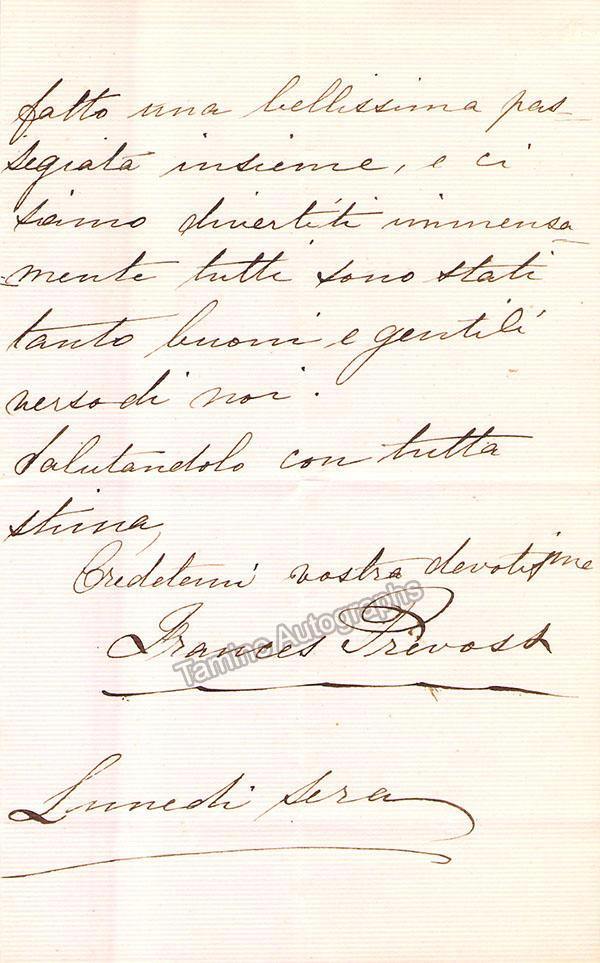 fatto una bellissima pas-
segiata insieme, e ci
siamo divertiti immensa-
-mente tutti sono stati
tanto buoni e gentili
verso di noi.
Salutandolo con tutta
stima,
Credetemi vostra devotissima
Frances Prévost
Tamino Autographs
Lunedi sera